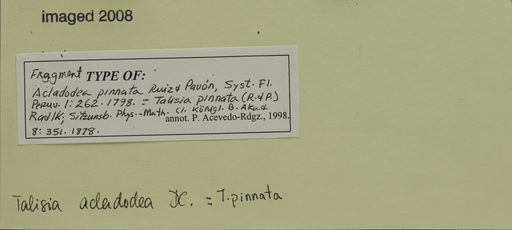 imaged 2008
Fragment TYPE OF:
Acladodea pinnata Ruiz & Pavón, Syst. Fl.
Peruv. 1: 262. 1798. = Talisia pinnata (R. & P.)
Radlk, Sitzunsb. Phys.-Math. Cl. Königl. B. Akad.
8: 351. 1878. annot. P. Acevedo-Rdgz., 1998.
Talisia acladodea DC. = T. pinnata